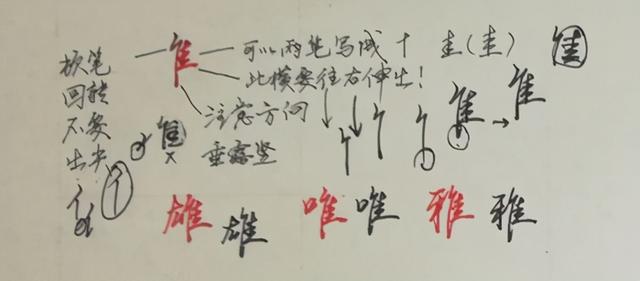 顿笔
回转
不要
出尖
隹
可以两笔写成 十 圭(圭) 隹
此横要往右伸出!
注意方向
垂露竖
隹
隹 → 隹
雄 雄 唯 唯 雅 雅